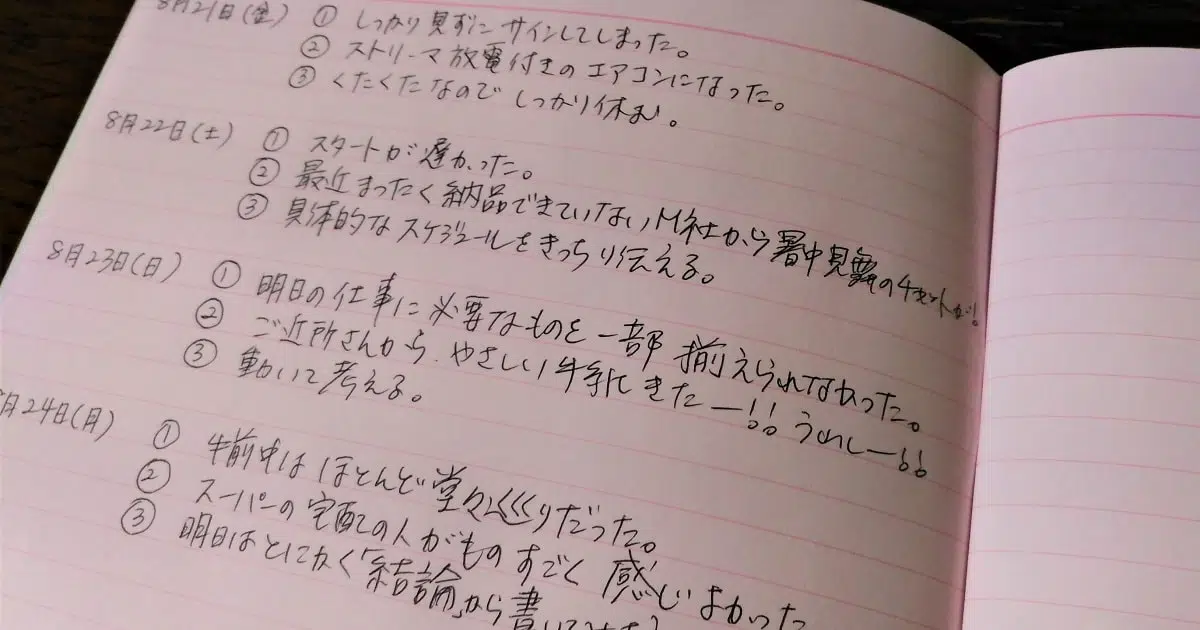 8月21日(金) ① しっかり見ずに サインしてしまった。
② ストリーマ放電付きの エアコンになった。
③ くたくたなので しっかり休む。
8月22日(土) ① スタートが遅かった。
② 最近まったく納品できていないM社から暑中見舞の4セットが!
③ 具体的なスケジュールをきっちり伝える。
8月23日(日) ① 明日の仕事に必要なものを一部 揃えられなかった。
② ご近所さんから、やさしい手紙きたー!! うれしー!!
③ 動いて考える。
月24日(月) ① 午前中は ほとんど堂々巡りだった。
② スーパーの宅配の人がものすごく 感じよかった
③ 明日はとにかく「結論」から書いて